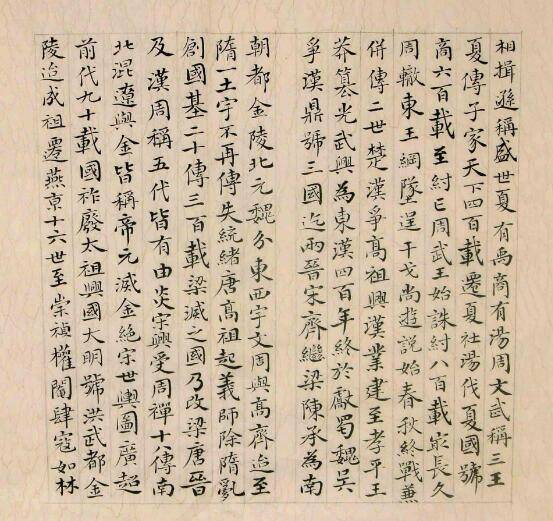 相揖遜稱盛世夏有禹商有湯周文武稱三王
夏傳子家天下四百載遷夏社湯伐夏國號
商六百載至紂亡周武王始誅紂八百載最長久
周轍東王綱墜逞干戈尚遊說始春秋終戰兼
併傳二世楚漢爭高祖興漢業建至孝平王
莽篡光武興為東漢四百年終於獻蜀魏吳
爭漢鼎號三國迄兩晉宋齊繼梁陳承為南
朝都金陵北元魏分東西宇文周與高齊迨至
隋一土宇不再傳失統緒唐高祖起義師除隋亂
創國基二十傳三百載梁滅之國乃改梁唐晉
及漢周稱五代皆有由炎宋興受周禪十八傳南
北混遼與金皆稱帝元滅金絕宋世輿圖廣超
前代九十載國祚廢太祖興國大明號洪武都金
陵迨成祖遷燕京十六世至崇禎權閹肆寇如林